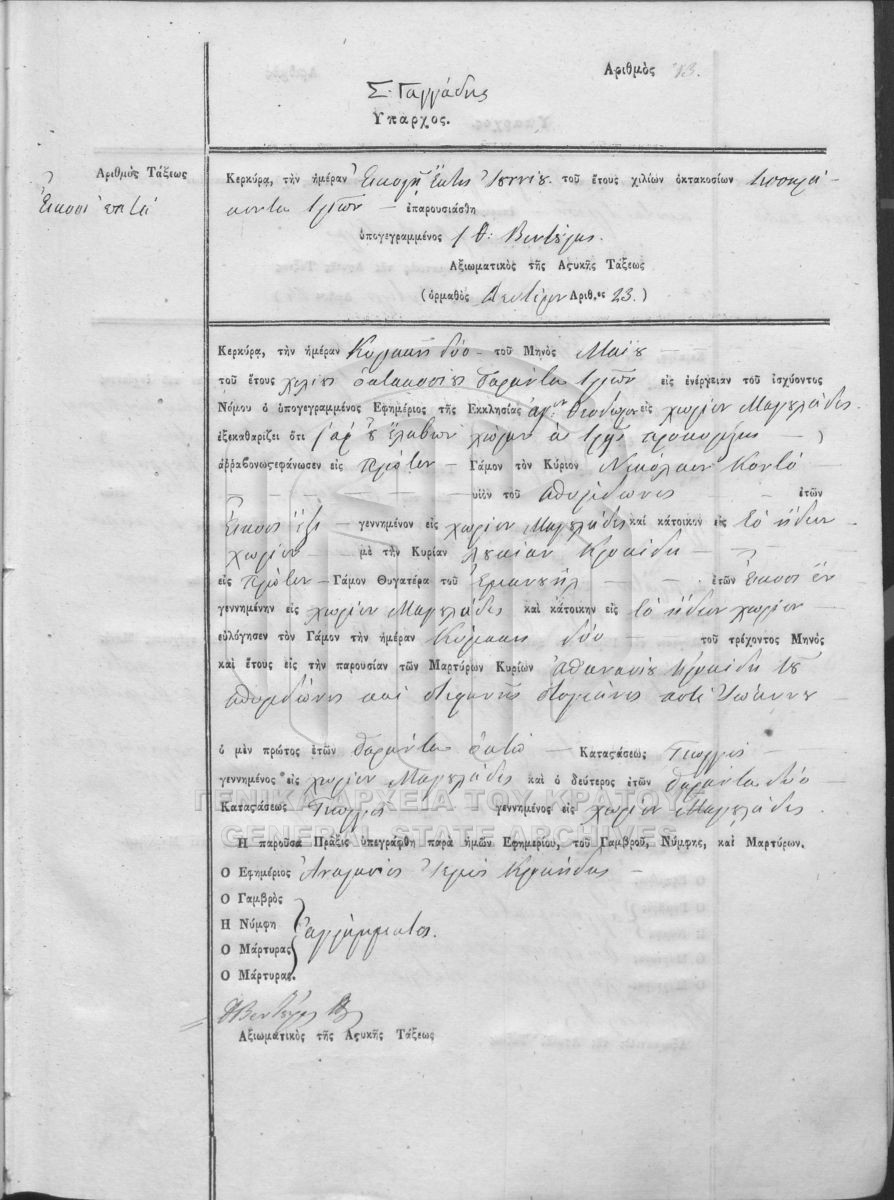 Αριθμὸς 13.
Σ. Γαγγάδης
Υπαρχος.
Αριθμὸς Τάξεως
Εἰκοσι ἑπτά
Κερκύρα, τὴν ἡμέραν Εικοστὴ Εκτη Ιουνιου τοῦ ἔτους χιλίων ὀκτακοσίων τεσσαρά-
κοντα τριῶν — ἐπαρουσιάσθη
ὑπογεγραμμένος
Αξιωματικὸς τῆς Αςυκῆς Τάξεως
(ὁρμαθὸς Δευτερον Αριθ.ος 23.)
Κερκύρα, τὴν ἡμέραν Κυριακη δύο — τοῦ Μηνὸς Μαΐου
τοῦ ἔτους χιλιους οκτακοσιους σαραντα τριῶν εἰς ἐνέργειαν τοῦ ἰσχύοντος
Νόμου ὁ ὑπογεγραμμένος Εφημέριος τῆς Εκκλησίας αγ. Θεοδωρων εἰς χωρίον Μαγουλάδες
ἐξεκαθαρίζει ὅτι ἔλαβον χώραν
ἀῤῥαβωνοςεφάνωσεν εἰς Πρῶτον — Γάμον τὸν Κύριον Νικόλαον Κοντό
— υἱὸν τοῦ σπυριδωνος — ἐτῶν
Εικοσι εξι — γεννημένον εἰς χωρίον Μαγουλάδες καὶ κάτοικον εἰς το ίδιον
χωρίον — μὲ τὴν Κυρίαν Κραιδη —
εἰς Πρῶτον — Γάμον Θυγατέρα τοῦ Εμανουηλ — ἐτῶν Εικοσι ἕν
γεννημένην εἰς χωρίον Μαγουλάδες καὶ κάτοικην εἰς το ίδιον χωρίον —
εὐλόγησεν τὸν Γάμον τὴν ἡμέραν Κυριακη δύο — τοῦ τρέχοντος Μηνὸς
καὶ ἔτους εἰς τὴν παρουσίαν τῶν Μαρτύρων Κυρίων Αθανασιου Κραιδη του
σπυριδώνος και στεφανῆς Ιωάννου —
ὁ μὲν πρῶτος ἐτῶν σαράντα οκτώ — Καταςάσεως Γεωργός
γεννημένος εἰς χωρίον Μαγουλάδες καὶ ὁ δεύτερος ἐτῶν σαράντα δύο
Καταςάσεως Γεωργός γεννημένος εἰς χωρίον Μαγουλάδες
Η παροῦσα Πρᾶξις ὑπεγράφθη παρὰ ἡμῶν Εφημερίου, τοῦ Γαμβροῦ, Νύμφης, καὶ Μαρτύρων.
Ο Εφημέριος Αναστάσιος Ιερεύς Κραήδης —
Ο Γαμβρὸς
Η Νύμφη ἀγράμματος.
Ο Μάρτυρας
Ο Μάρτυρας.
Αξιωματικὸς τῆς Αςυκῆς Τάξεως
ΓΕΝΙΚΑ ΑΡΧΕΙΑ ΤΟΥ ΚΡΑΤΟΥΣ
GENERAL STATE ARCHIVES